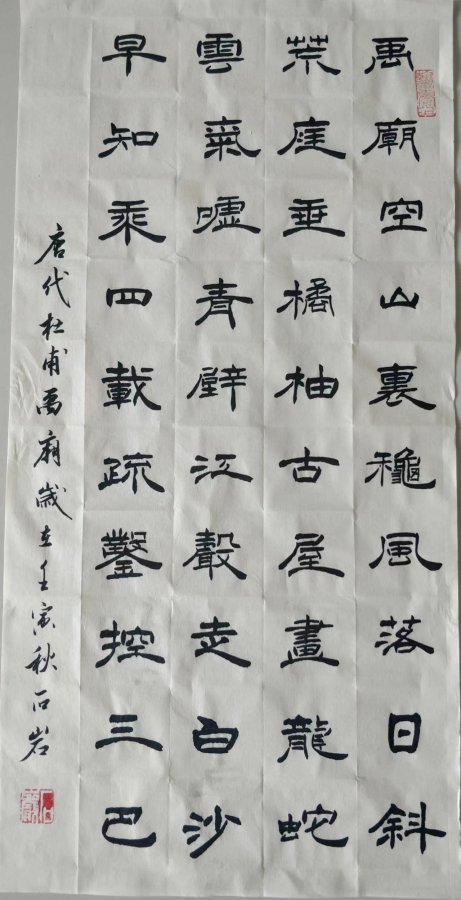 禹廟空山裏穐風落日斜
荒庭垂橘柚古屋畫龍蛇
雲氣嘘青壁江聲走白沙
早知乘四載疏鑿控三巴
唐代杜甫禹廟歲在壬寅秋石岩